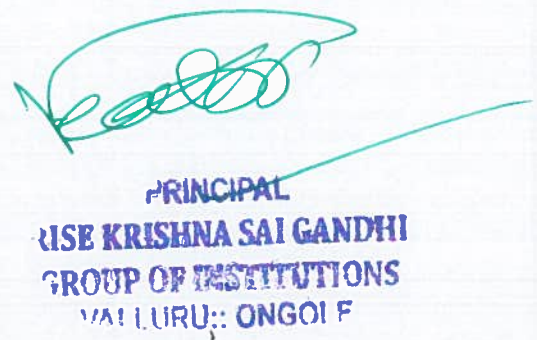 PRINCIPAL
RISE KRISHNA SAI GANDHI
GROUP OF INSTITUTIONS
VALLURU:: ONGOLE